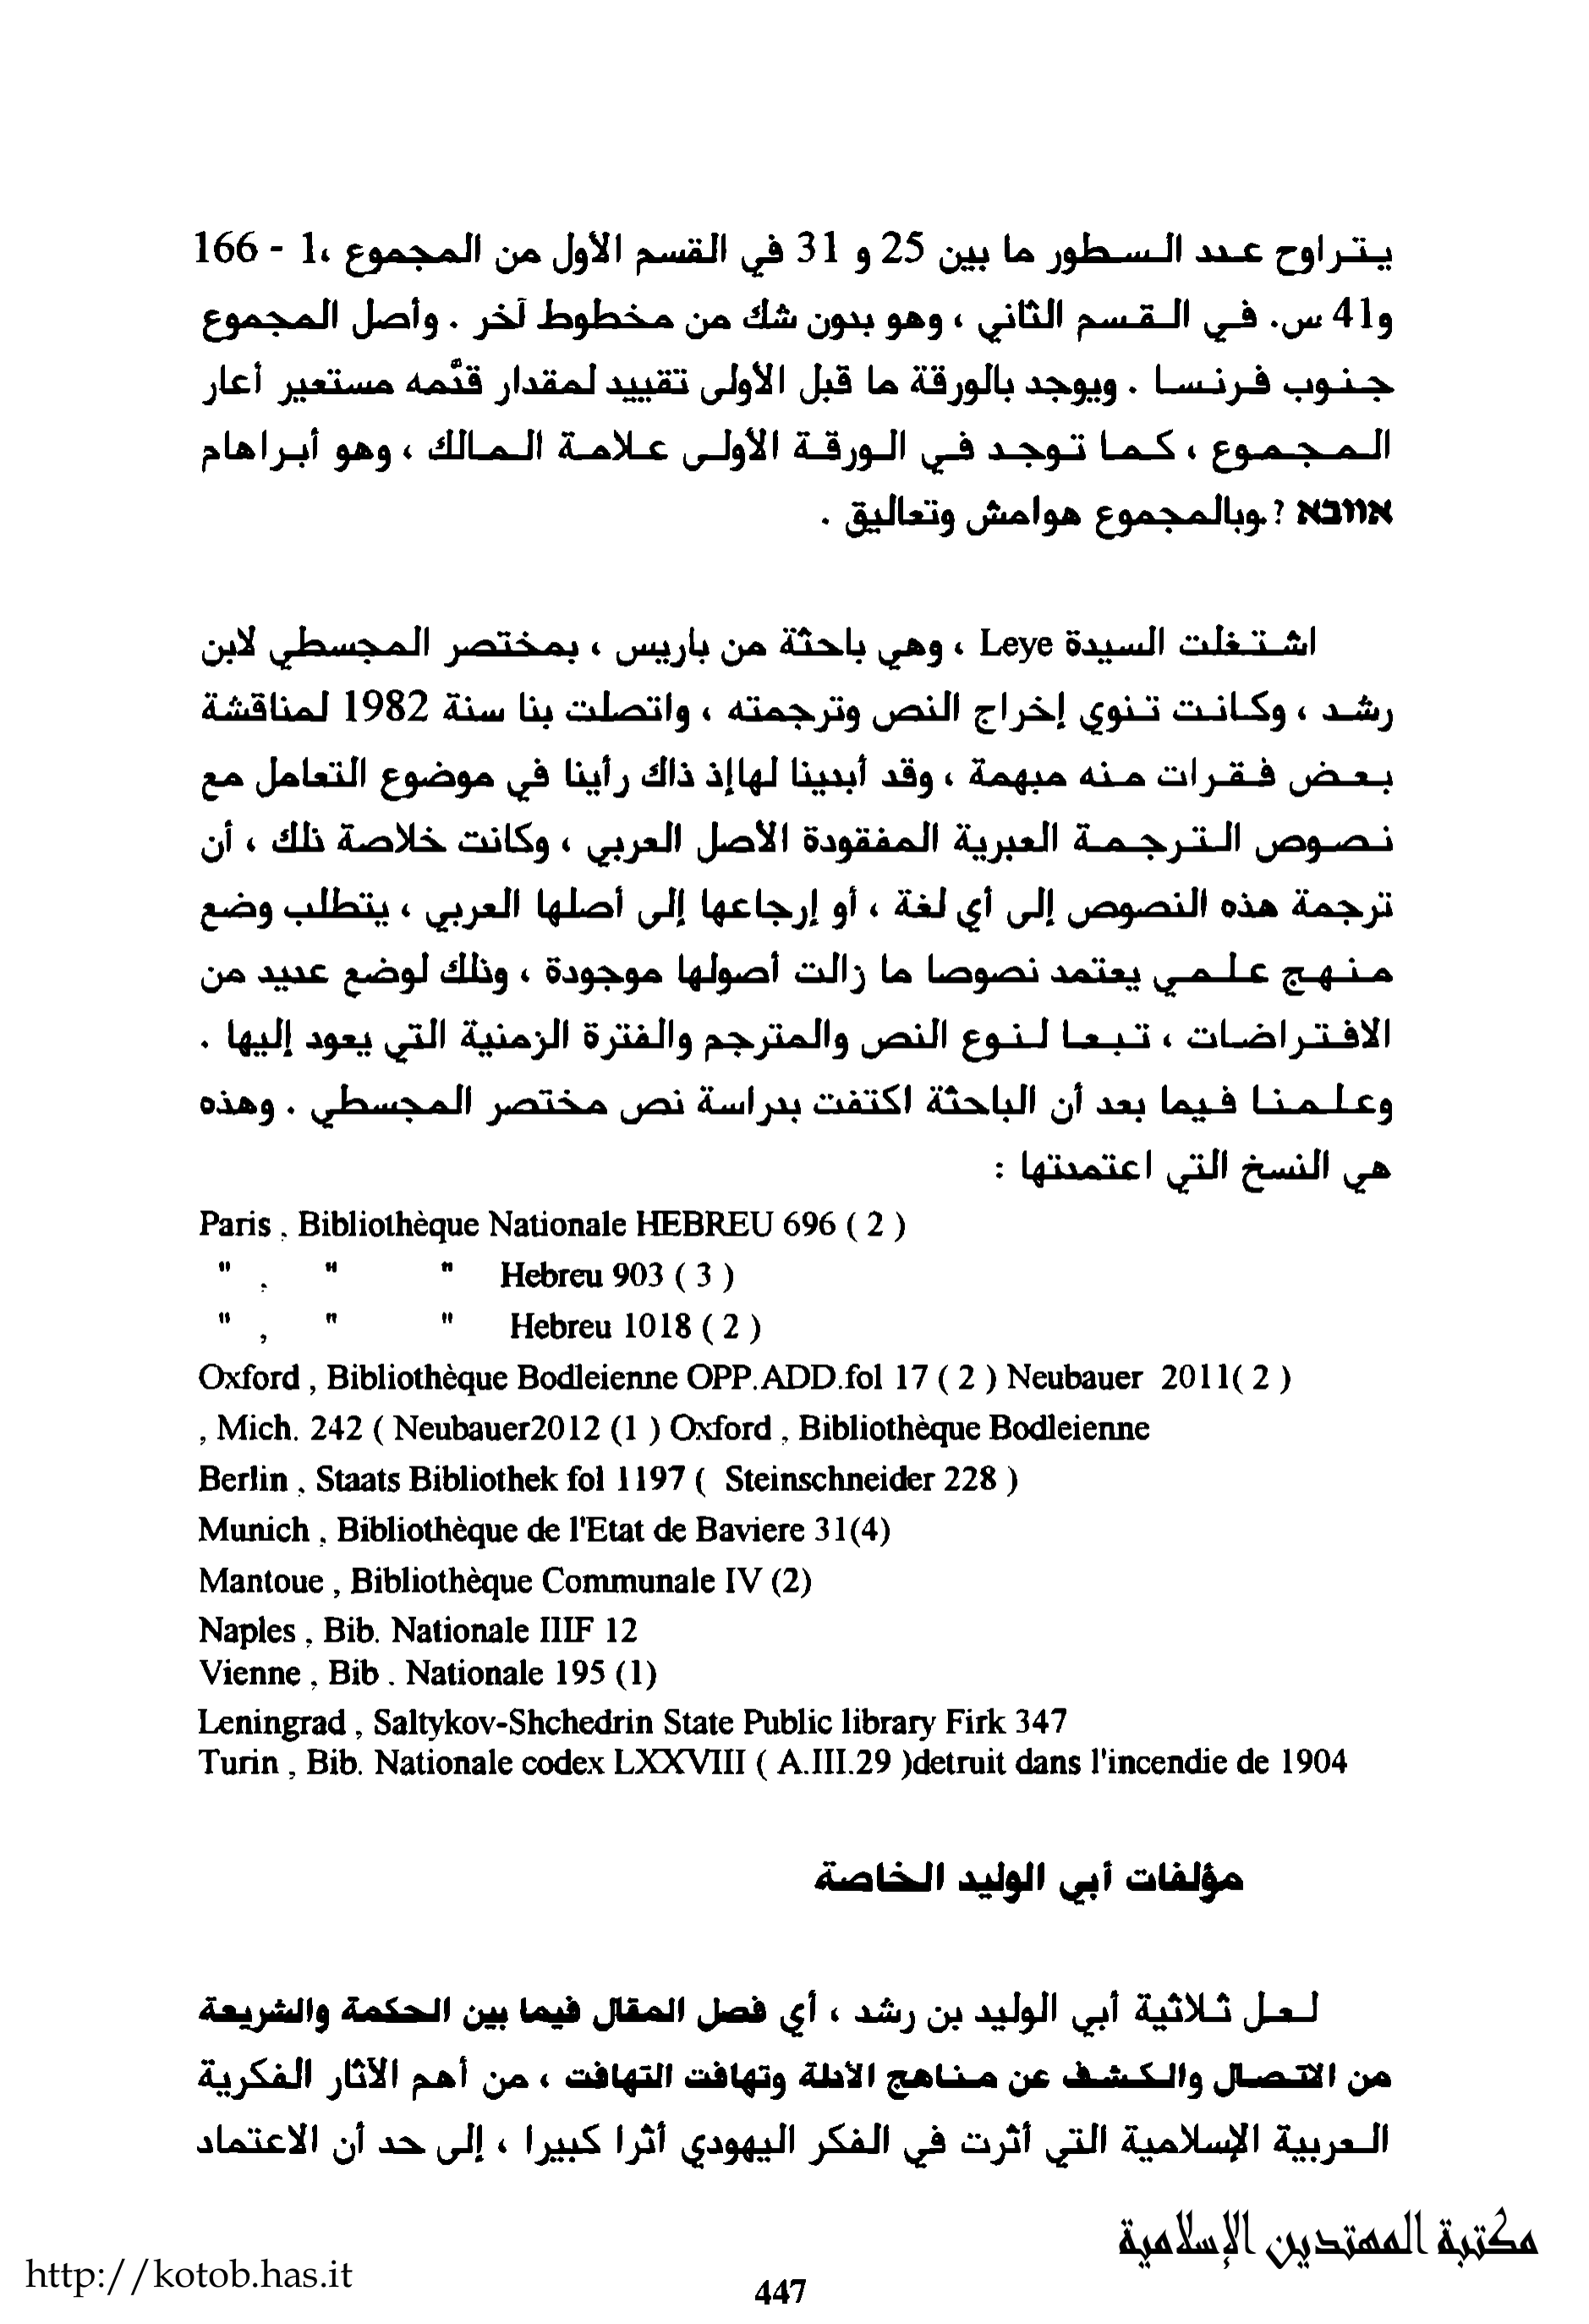 يتراوح عدد السطور ما بين 25 و 31 في القسم الأول من المجموع ،1 - 166
و41 س. في القسم الثاني ، وهو بدون شك من مخطوط آخر . وأصل المجموع
جنوب فرنسا . ويوجد بالورقة ما قبل الأولى تقييد لمقدار قدَّمه مستعير أعار
المجموع ، كما توجد في الورقة الأولى علامة المالك ، وهو أبراهام
אוובא ? .وبالمجموع هوامش وتعاليق .
اشتغلت السيدة Leye ، وهي باحثة من باريس ، بمختصر المجسطي لابن
رشد ، وكانت تنوي إخراج النص وترجمته ، واتصلت بنا سنة 1982 لمناقشة
بعض فقرات منه مبهمة ، وقد أبدينا لهاإذ ذاك رأينا في موضوع التعامل مع
نصوص الترجمة العبرية المفقودة الأصل العربي ، وكانت خلاصة ذلك ، أن
ترجمة هذه النصوص إلى أي لغة ، أو إرجاعها إلى أصلها العربي ، يتطلب وضع
منهج علمي يعتمد نصوصا ما زالت أصولها موجودة ، وذلك لوضع عديد من
الافتراضات ، تبعا لنوع النص والمترجم والفترة الزمنية التي يعود إليها .
وعلمنا فيما بعد أن الباحثة اكتفت بدراسة نص مختصر المجسطي . وهذه
هي النسخ التي اعتمدتها :
Paris , Bibliothèque Nationale HEBREU 696 ( 2 )
" , " " Hebreu 903 ( 3 )
" , " " Hebreu 1018 ( 2 )
Oxford , Bibliothèque Bodleienne OPP.ADD.fol 17 ( 2 ) Neubauer 2011( 2 )
, Mich. 242 ( Neubauer2012 (1 ) Oxford , Bibliothèque Bodleienne
Berlin , Staats Bibliothek fol 1197 ( Steinschneider 228 )
Munich , Bibliothèque de l'Etat de Baviere 31(4)
Mantoue , Bibliothèque Communale IV (2)
Naples , Bib. Nationale IIIF 12
Vienne , Bib . Nationale 195 (1)
Leningrad , Saltykov-Shchedrin State Public library Firk 347
Turin , Bib. Nationale codex LXXVIII ( A.III.29 )detruit dans l'incendie de 1904
مؤلفات أبي الوليد الخاصة
لعل ثلاثية أبي الوليد بن رشد ، أي فصل المقال فيما بين الحكمة والشريعة
من الاتصال والكشف عن مناهج الأدلة وتهافت التهافت ، من أهم الآثار الفكرية
العربية الإسلامية التي أثرت في الفكر اليهودي أثرا كبيرا ، إلى حد أن الاعتماد
مكتبة المهتدين الإسلامية
http://kotob.has.it
447